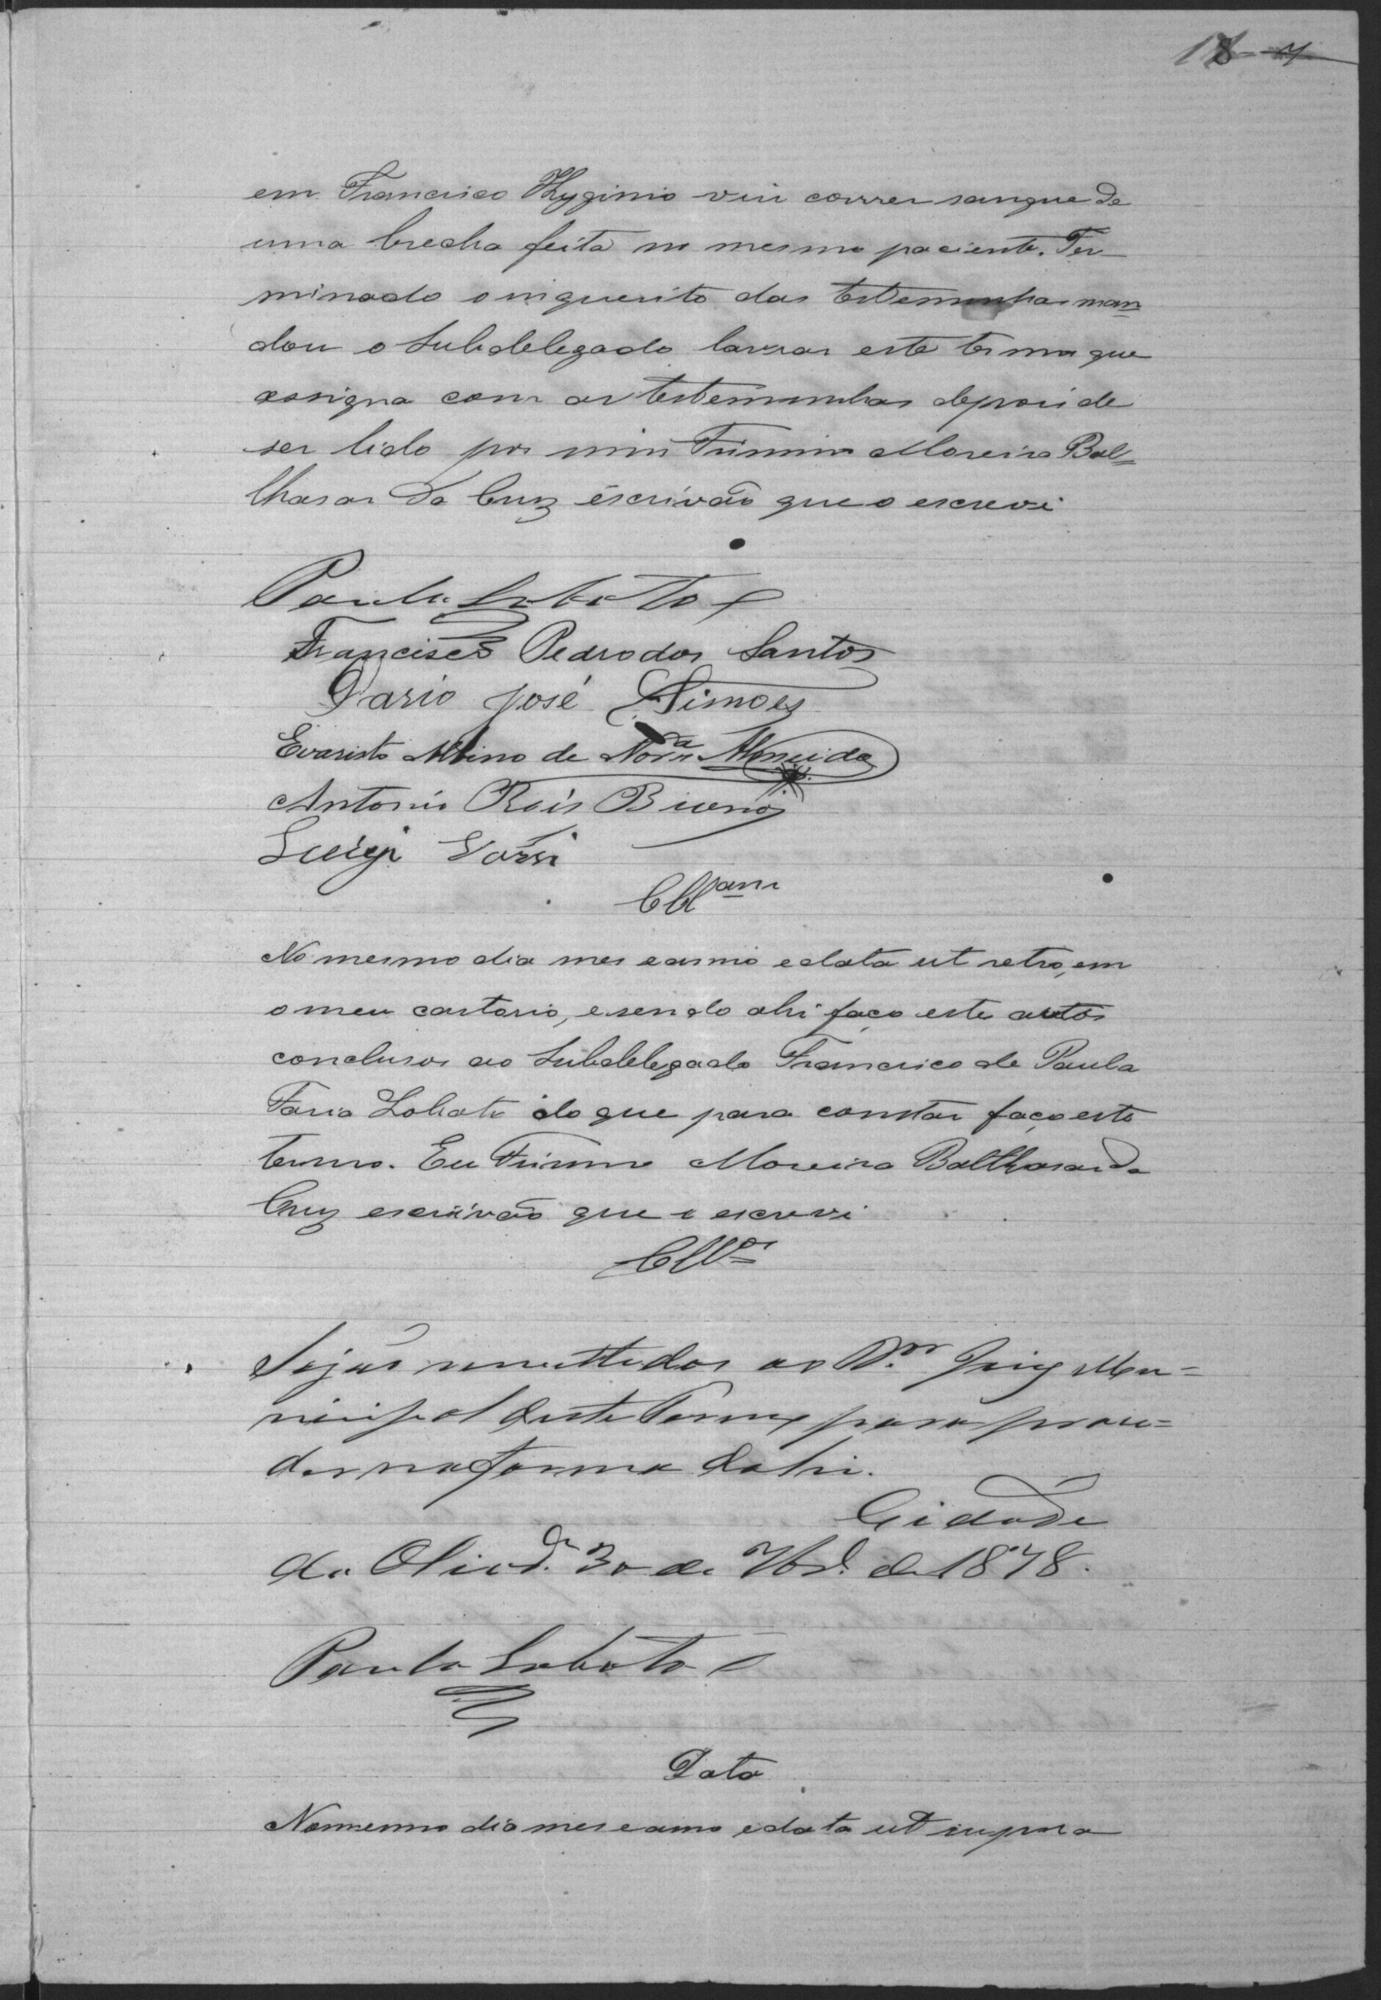 18
em Francisco Hyginio viu correr sangue de
uma brecha feita no mesmo paciente. Ter-
minado o inquerito das testemunhas man=
dou o Subdelegado lavrar este termo que
assigna com as testemunhas depois de
ser lido por mim Firmino Moreira Bal=
thasar da Cruz escrivão que o escrevi
Paula Lobato
Francisco Pedro dos Santos
Dario José Simões
Evaristo Albino de Almeida
Antonio Rois Bueno
Luigi
Cllsam
No mesmo dia mes e anno e data ut retro, em
o meu cartorio, e sendo ahi faço estes autos
conclusos ao Subdelegado Francisco de Paula
Faria Lobato do que para constar faço este
termo. Eu Firmino Moreira Balthasar da
Cruz escrivão que o escrevi
Cllos
Sejão remettidos ao Dr. Juiz Mu=
nicipal deste Termo para proce=
der na forma da lei.
Cidade
da Olivra. 30 de de 1878.
Paula Lobato
Data
No mesmo dia mes e anno e data ut supra